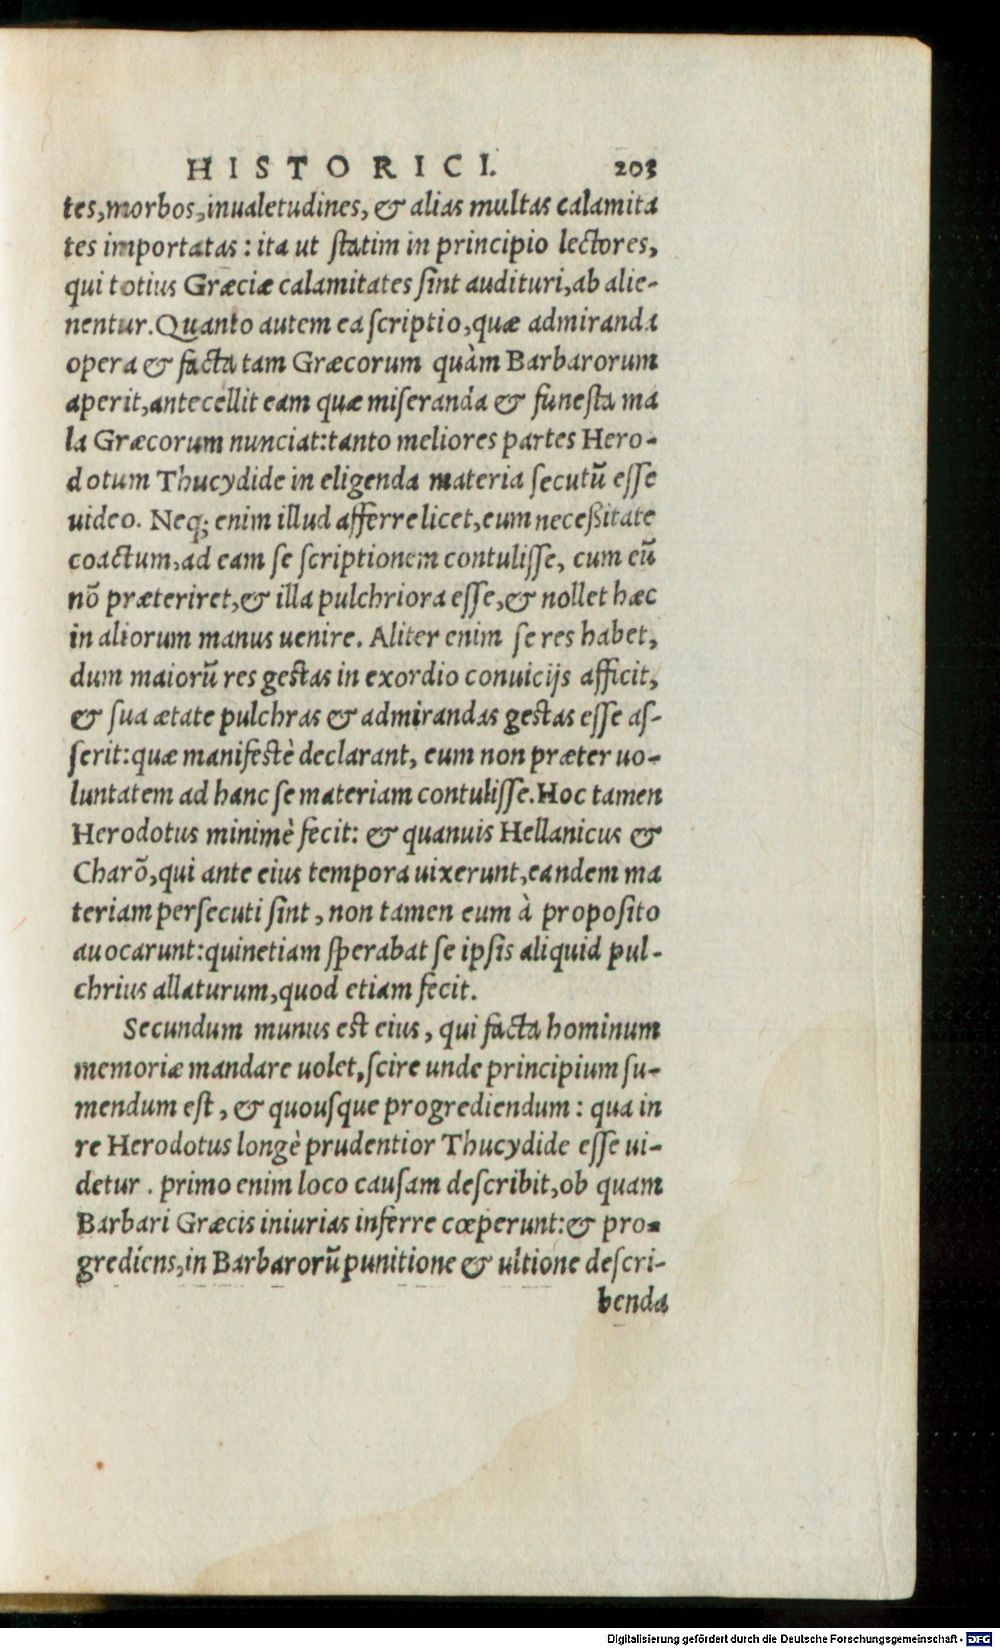 HISTORICI. 203
tes, morbos, inualetudines, & alias multas calamita
tes importatas: ita ut statim in principio lectores,
qui totius Græciæ calamitates sint audituri, ab alie-
nentur. Quanto autem ea scriptio, quæ admiranda
opera & facta tam Græcorum quàm Barbarorum
aperit, antecellit eam quæ miseranda & funesta ma
la Græcorum nunciat: tanto meliores partes Hero-
dotum Thucydide in eligenda materia secutũ esse
uideo. Neq; enim illud afferre licet, eum neceßitate
coactum, ad eam se scriptionem contulisse, cum eũ
nõ præteriret, & illa pulchriora esse, & nollet hæc
in aliorum manus uenire. Aliter enim se res habet,
dum maiorũ res gestas in exordio conuicijs afficit,
& sua ætate pulchras & admirandas gestas esse as-
serit: quæ manifestè declarant, eum non præter uo-
luntatem ad hanc se materiam contulisse. Hoc tamen
Herodotus minimè fecit: & quanuis Hellanicus &
Charõ, qui ante eius tempora uixerunt, eandem ma
teriam persecuti sint, non tamen eum à proposito
auocarunt: quinetiam sperabat se ipsis aliquid pul-
chrius allaturum, quod etiam fecit.
Secundum munus est eius, qui facta hominum
memoriæ mandare uolet, scire unde principium su-
mendum est, & quousque progrediendum: qua in
re Herodotus longè prudentior Thucydide esse ui-
detur. primo enim loco causam describit, ob quam
Barbari Græcis iniurias inferre cœperunt: & pro-
grediens, in Barbarorũ punitione & ultione descri-
benda
Digitalisierung gefördert durch die Deutsche Forschungsgemeinschaft - DFG